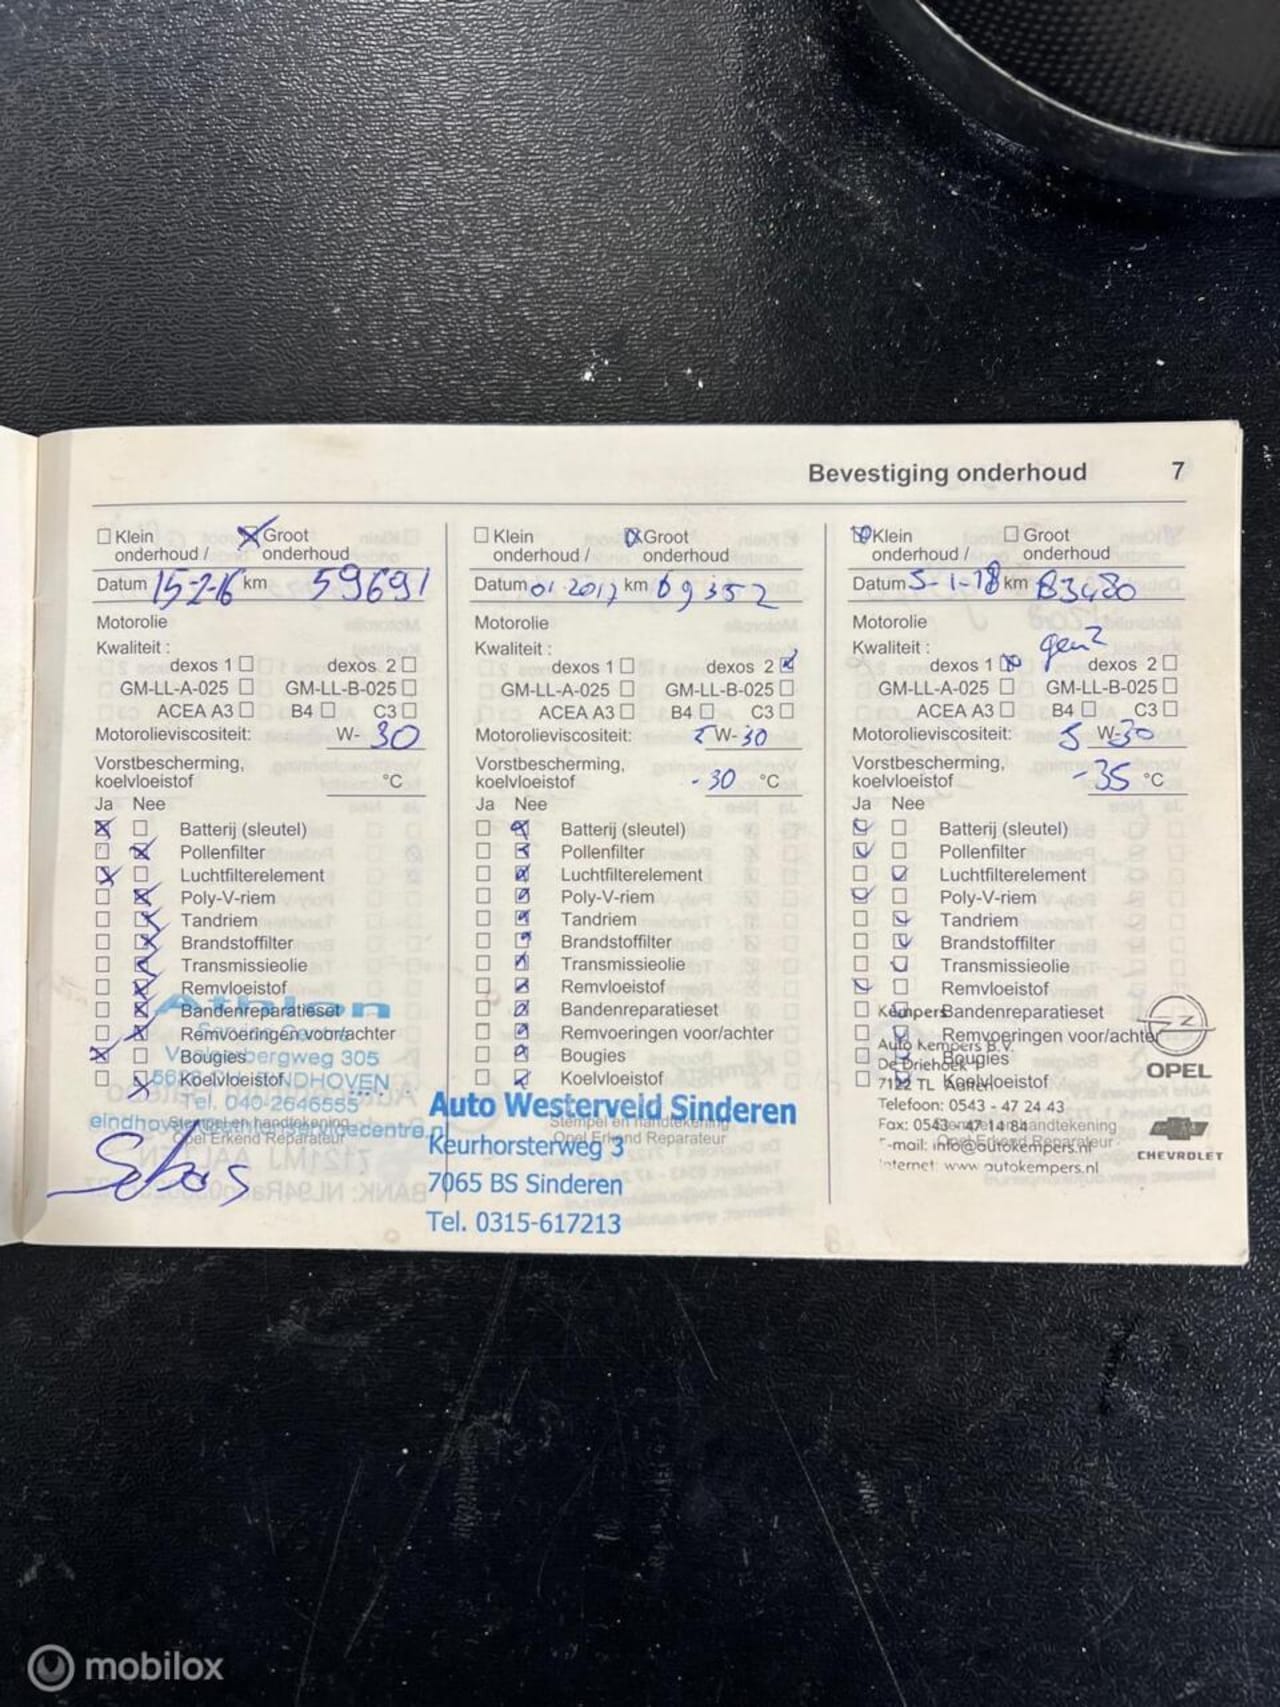 Bevestiging onderhoud 7
Klein onderhoud / Groot onderhoud
Datum 15-2-16 km 59691
Motorolie
Kwaliteit :
dexos 1 dexos 2
GM-LL-A-025 GM-LL-B-025
ACEA A3 B4 C3
Motorolieviscositeit: W- 30
Vorstbescherming,
koelvloeistof °C
Ja Nee
Batterij (sleutel)
Pollenfilter
Luchtfilterelement
Poly-V-riem
Tandriem
Brandstoffilter
Transmissieolie
Remvloeistof
Bandenreparatieset
Remvoeringen voor/achter
Bougies
Koelvloeistof
Stempel en handtekening
Opel Erkend Reparateur
Athlon
Service Centre
305
EINDHOVEN
Tel. 040-2646555
Klein onderhoud / Groot onderhoud
Datum 01-2017 km 69352
Motorolie
Kwaliteit :
dexos 1 dexos 2
GM-LL-A-025 GM-LL-B-025
ACEA A3 B4 C3
Motorolieviscositeit: 5 W- 30
Vorstbescherming,
koelvloeistof -30 °C
Ja Nee
Batterij (sleutel)
Pollenfilter
Luchtfilterelement
Poly-V-riem
Tandriem
Brandstoffilter
Transmissieolie
Remvloeistof
Bandenreparatieset
Remvoeringen voor/achter
Bougies
Koelvloeistof
Stempel en handtekening
Opel Erkend Reparateur
Auto Westerveld Sinderen
Keurhorsterweg 3
7065 BS Sinderen
Tel. 0315-617213
Klein onderhoud / Groot onderhoud
Datum 5-1-18 km 83480
Motorolie
Kwaliteit : gen2
dexos 1 dexos 2
GM-LL-A-025 GM-LL-B-025
ACEA A3 B4 C3
Motorolieviscositeit: 5 W-30
Vorstbescherming,
koelvloeistof -35 °C
Ja Nee
Batterij (sleutel)
Pollenfilter
Luchtfilterelement
Poly-V-riem
Tandriem
Brandstoffilter
Transmissieolie
Remvloeistof
Bandenreparatieset
Remvoeringen voor/achter
Bougies
Koelvloeistof
Stempel en handtekening
Opel Erkend Reparateur
Kempers
Auto Kempers B.V.
De Driehoek
7122 TL Aalten
Telefoon: 0543 - 47 24 43
Fax: 0543 - 47 14 84
E-mail: info@autokempers.nl
Internet: www.autokempers.nl
OPEL
CHEVROLET
mobilox